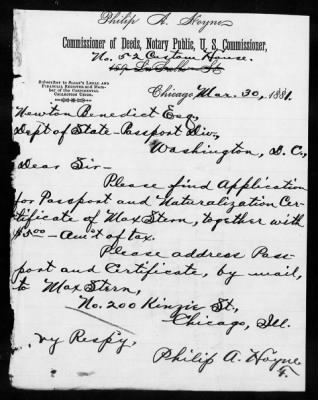 Philip A. Hoyne
Commissioner of Deeds, Notary Public, U. S. Commissioner,
No. 52 Custom House.
Subscriber to Sharp's Legal and
Financial Register and Mem-
ber of the Continental
Collection Union.
Chicago, Mar. 30, 1881.
Newton Benedict Esq,
Dept of State Passport Div.,
Washington, D. C.,
Dear Sir-
Please find Application
for Passport and Naturalization Cer-
tificate of Max Stern, together with
$5.00 – Am't of tax.
Please address Pass-
port and Certificate, by mail,
to Max Stern,
No. 200 Kinzie St,
Chicago, Ill.
Vy Respy,
Philip A. Hoyne